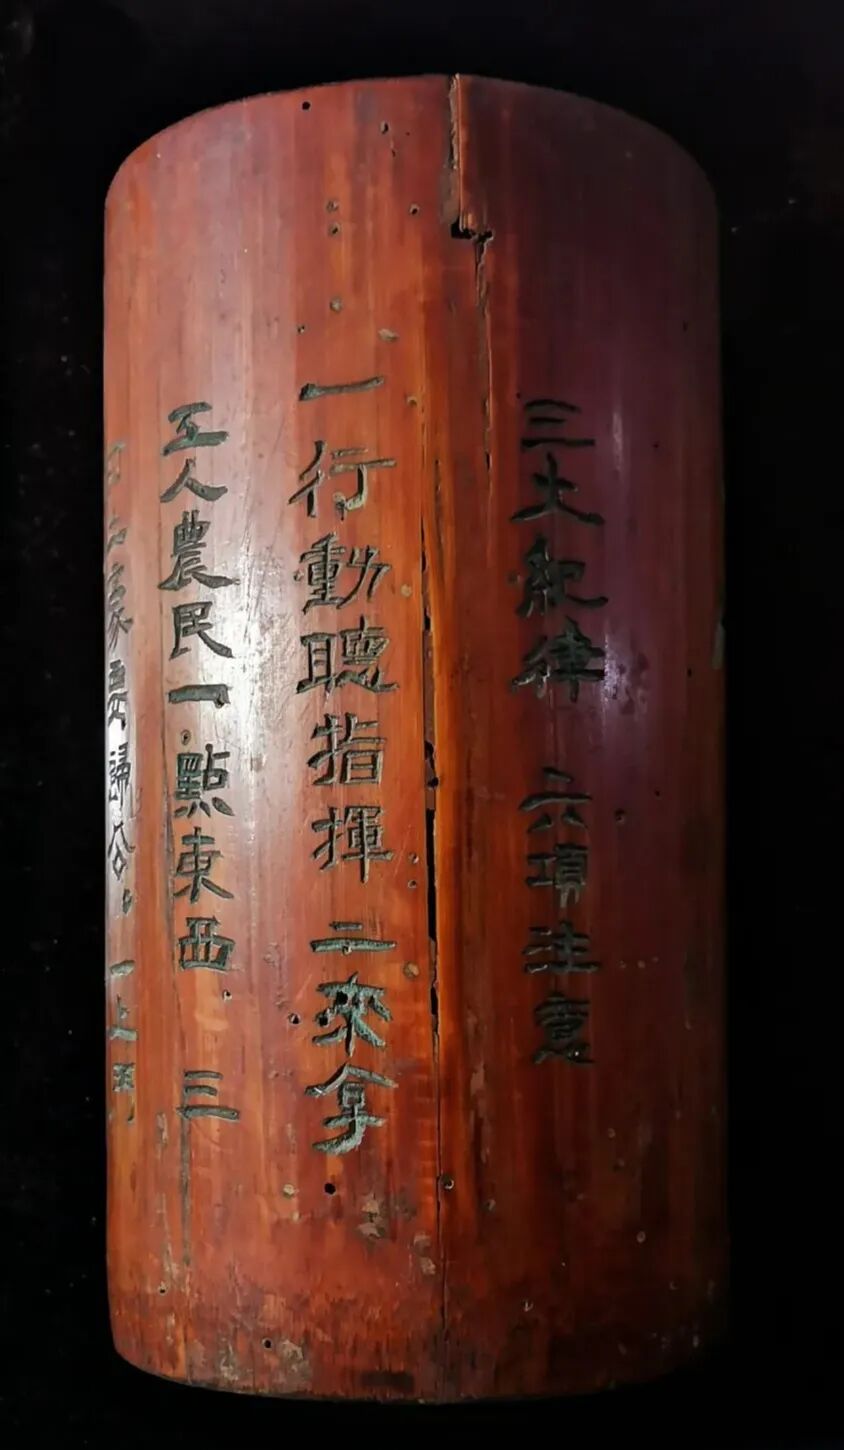 三大紀律 六項注意
一行動聽指揮 二來拿
工人農民一點東西 三
豪要歸公 一上門